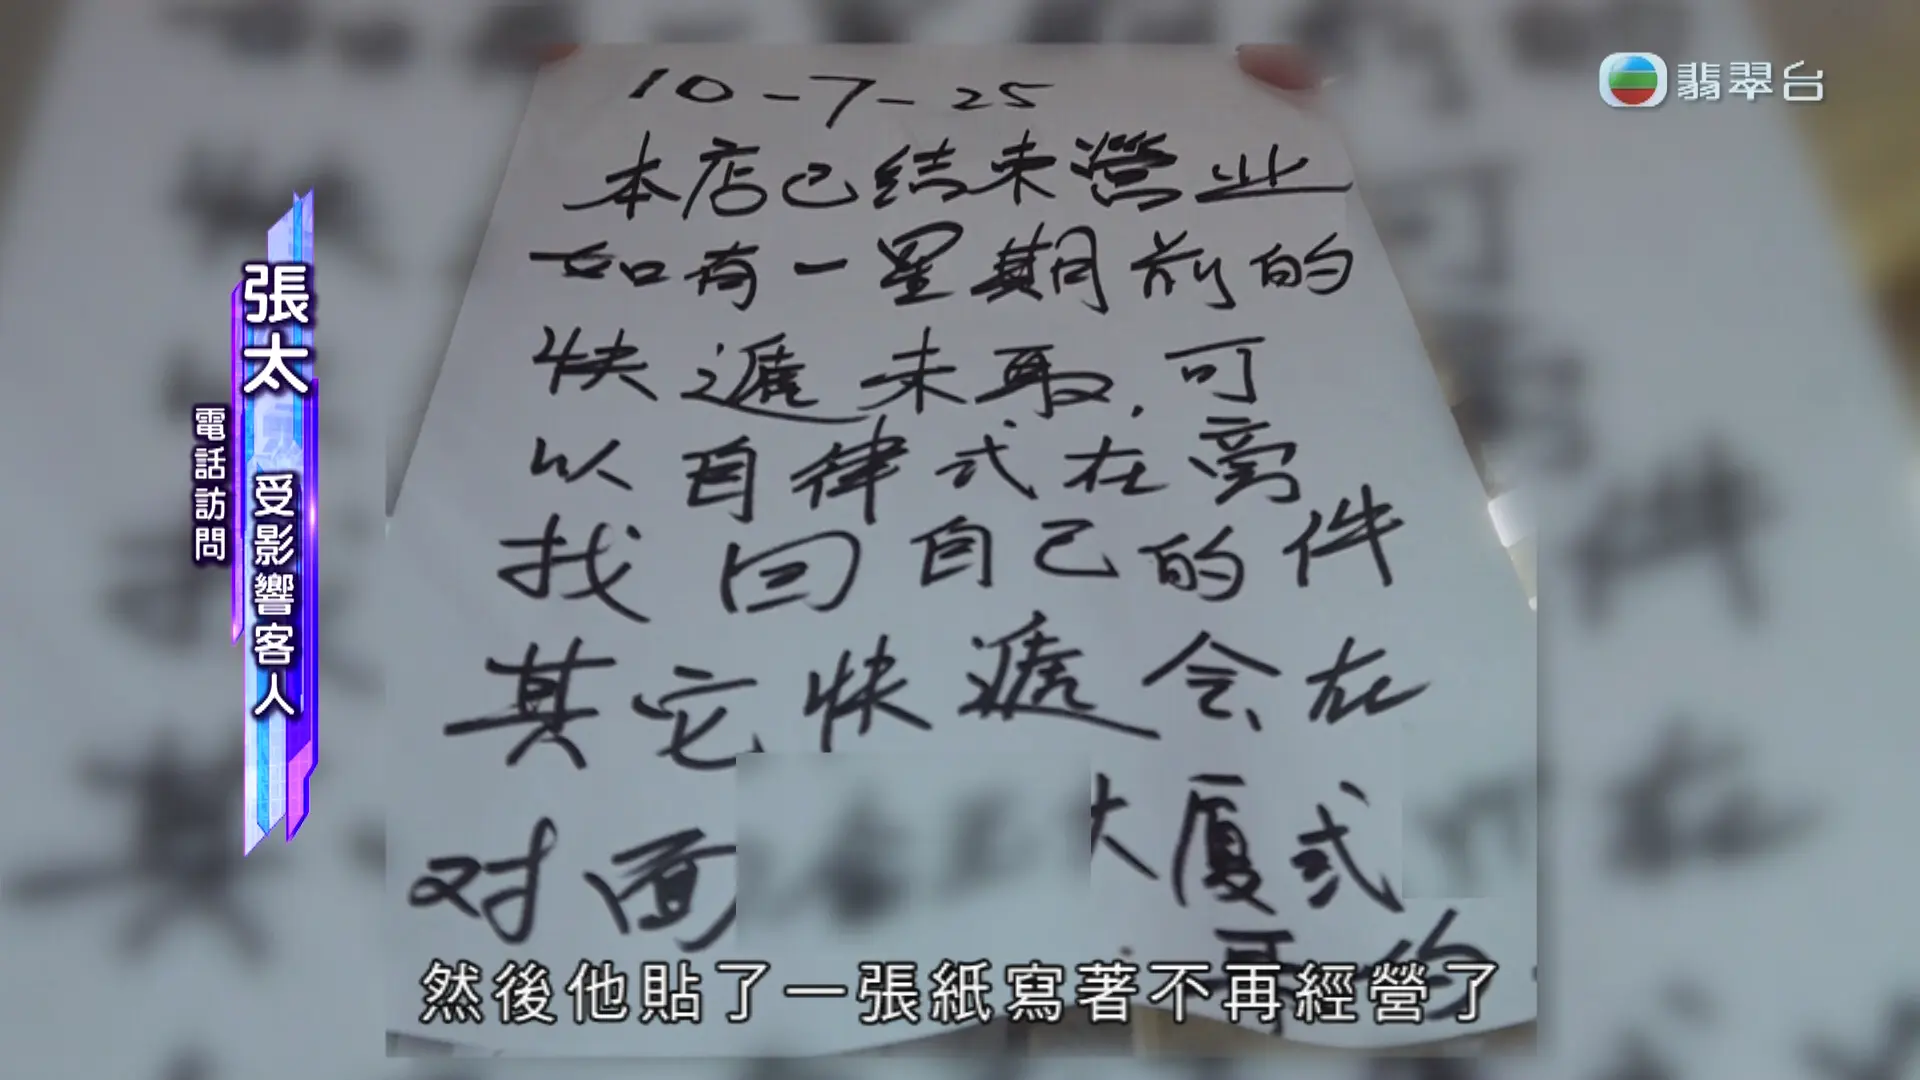 翡翠台
10-7-25
本店已结束營业
如有一星期前的
快遞未取,可
以自律式在旁
找回自己的件
其它快遞会在
对面 大廈式
張太 受影響客人
電話訪問
然後他貼了一張紙寫著不再經營了